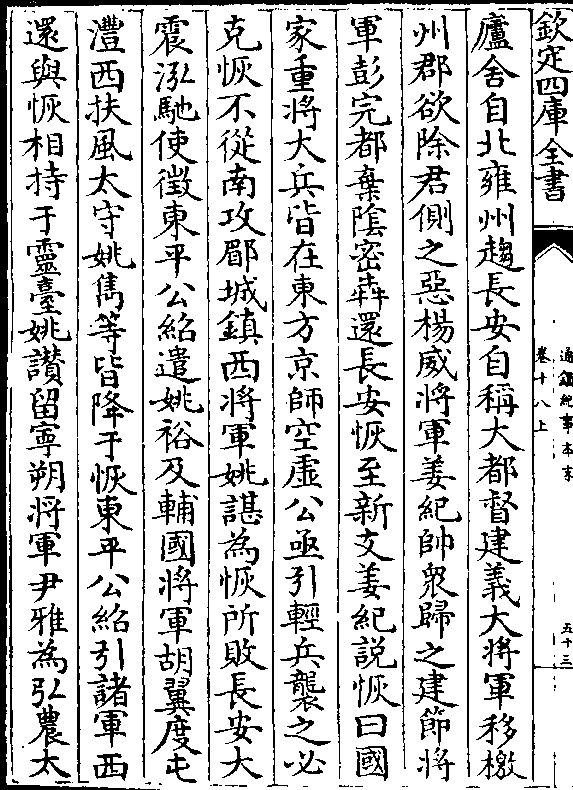 欽定四庫全書
通鑑紀事本末
卷十八上
五十三
廬舍自北雍州趨長安自稱大都督建義大將軍移檄
州郡欲除君側之惡楊威將軍姜紀帥衆歸之建節將
軍彭完都棄陰密犇還長安恢至新支姜紀說恢曰國
家重將大兵皆在東方京師空虛公亟引輕兵襲之必
克恢不從南攻郿城鎮西將軍姚諶為恢所敗長安大
震泓馳使徵東平公紹遣姚裕及輔國將軍胡翼度屯
灃西扶風太守姚雋等皆降于恢東平公紹引諸軍西
還與恢相持于靈臺姚讃留寜朔將軍尹雅為弘農太